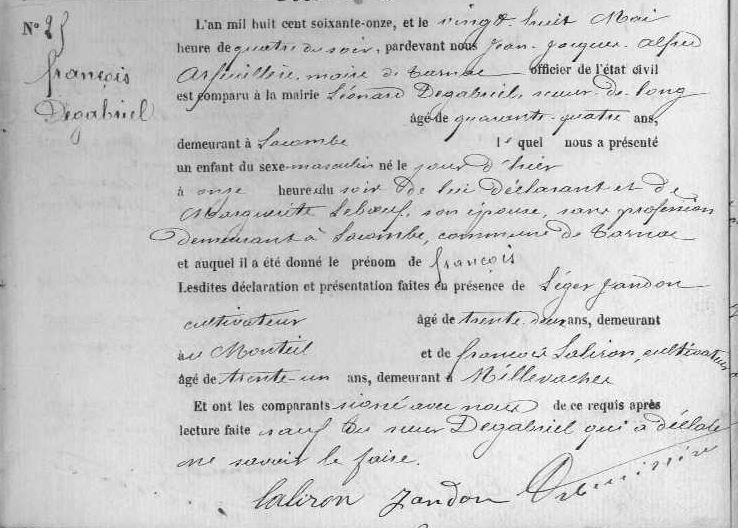 N° 25
françois
Degabriel
L'an mil huit cent soixante-onze, et le vingt-huit Mai
heure de quatre du soir, pardevant nous Jean-Jacques-Alfred
maire de Tarnac officier de l'état civil
est comparu à la mairie Léonard Degabriel, scieur-de-long
âgé de quarante-quatre ans,
demeurant à Lacombe lequel nous a présenté
un enfant du sexe masculin né le jour d'hier
à onze heure du soir de lui déclarant et de
Marguerite Lebœuf, son épouse, sans profession
demeurant à Lacombe, commune de Tarnac
et auquel il a été donné le prénom de françois
Lesdites déclaration et présentation faites en présence de Léger Jandon
cultivateur âgé de trente-deux ans, demeurant
au Monteil et de françois Laliron, cultivateur
âgé de trente-un ans, demeurant à Millevaches
Et ont les comparants signé avec nous de ce requis après
lecture faite sauf du sieur Degabriel qui a déclaré
ne savoir le faire.
Laliron Jandon